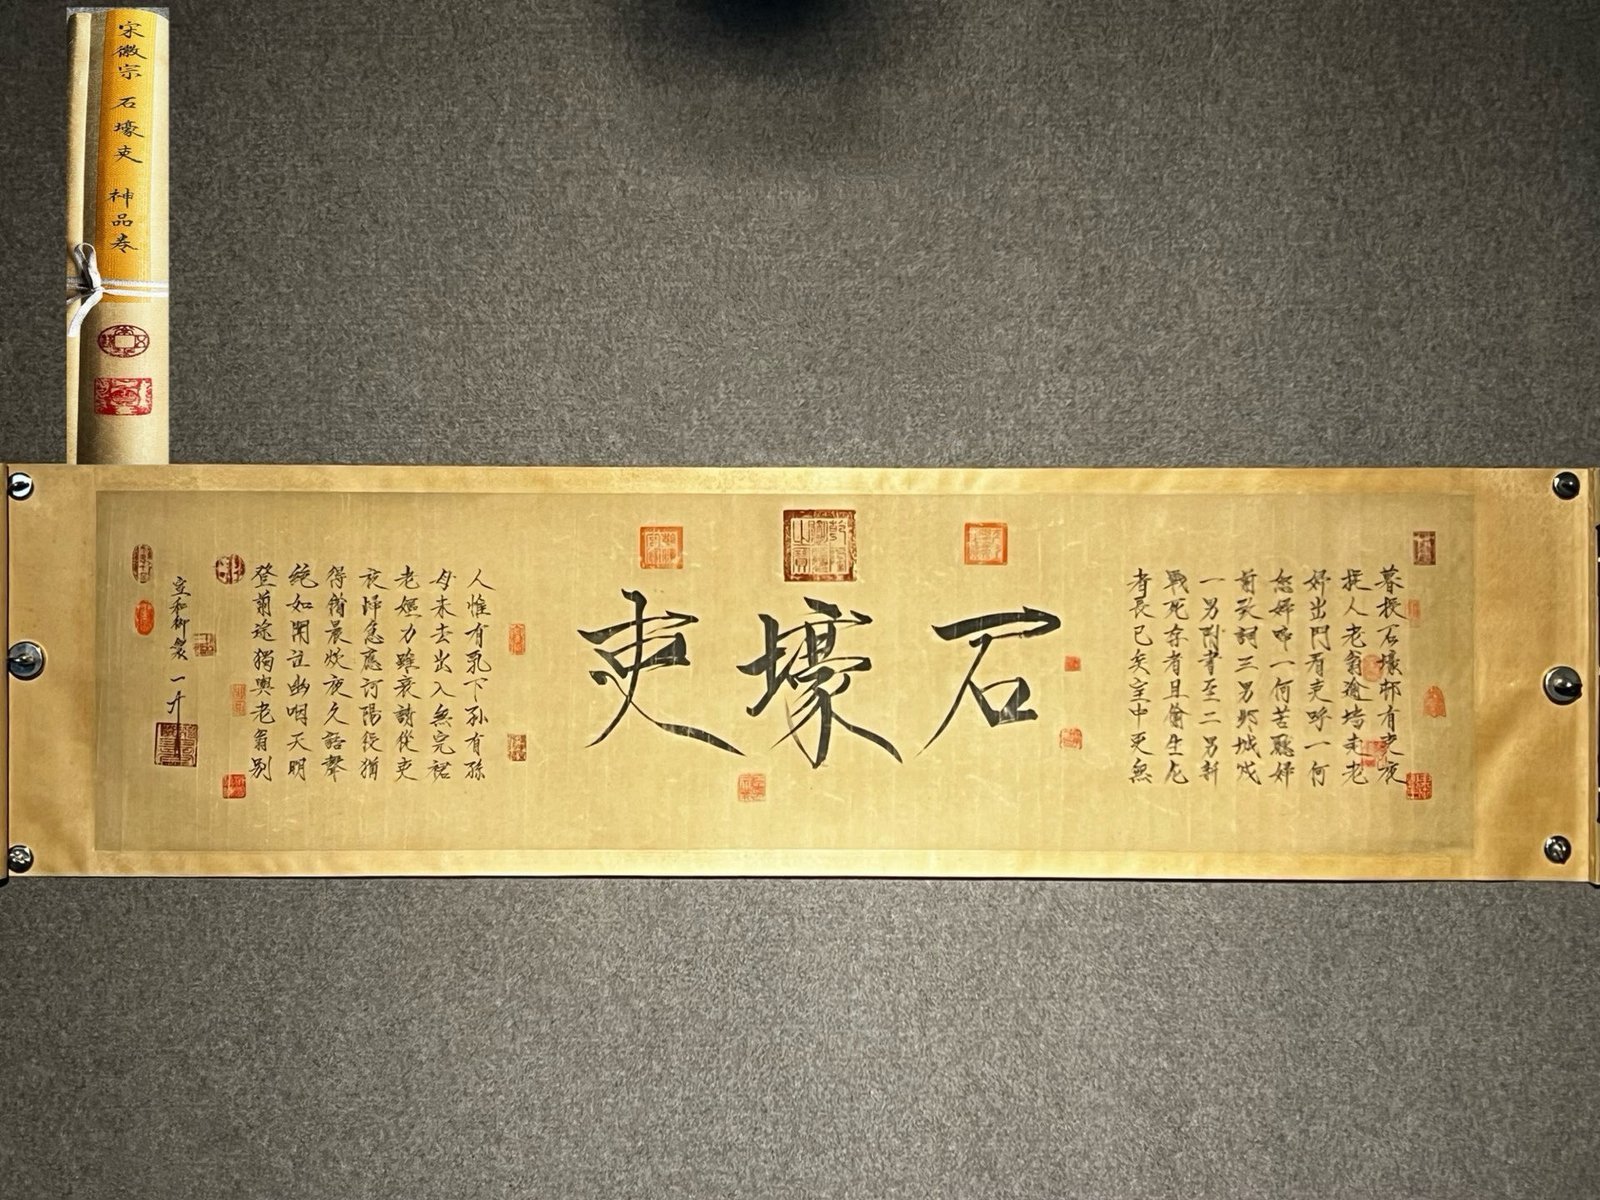 宋徽宗 石壕吏 神品卷
暮投石壕邨有吏夜
捉人老翁逾墻走老
婦出門看吏呼一何
怒婦啼一何苦聽婦
前致詞三男鄴城戍
一男附書至二男新
戰死存者且偷生死
者長已矣室中更無
石壕吏
人惟有乳下孫有孫
母未去出入無完裙
老嫗力雖衰請從吏
夜歸急應河陽役猶
得備晨炊夜久語聲
絕如聞泣幽咽天明
登前途獨與老翁別
宣和御製